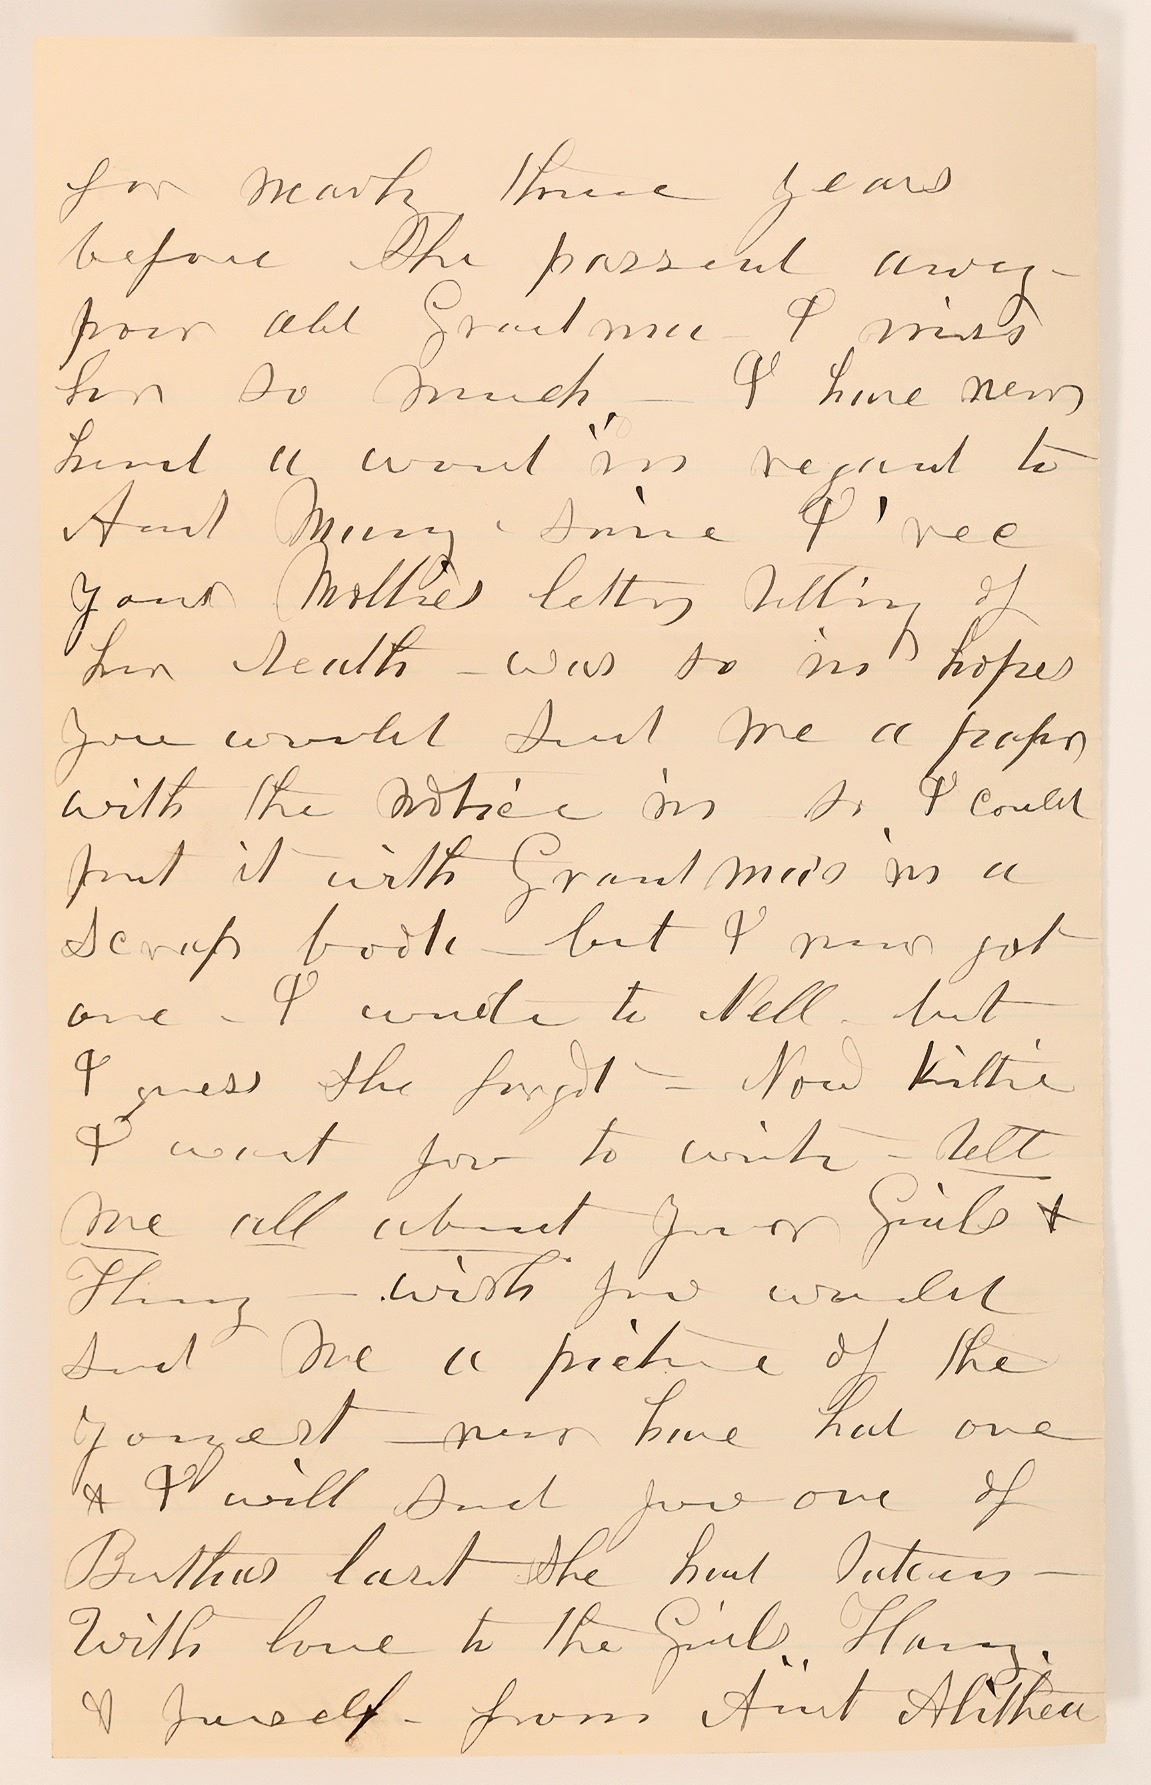 for nearly three years
before She passed away -
poor old Grandma - I miss
her so much - I have never
heard a word in regard to
Aunt Mary since I rec
your Mother's letter telling of
her death - was so in hopes
you would send me a paper
with the notice in so I could
put it with Grandma's in a
scrap book - but I never got
one - I wrote to Nell - but
I guess she forgot - Now Kittie
I want you to write - tell
me all about your Girls &
Harry - wish you would
send me a picture of the
youngest - never have had one
& I will send you one of
Berthas last She had taken -
With love to the Girls, Harry,
& yourself - from Aunt Alithea